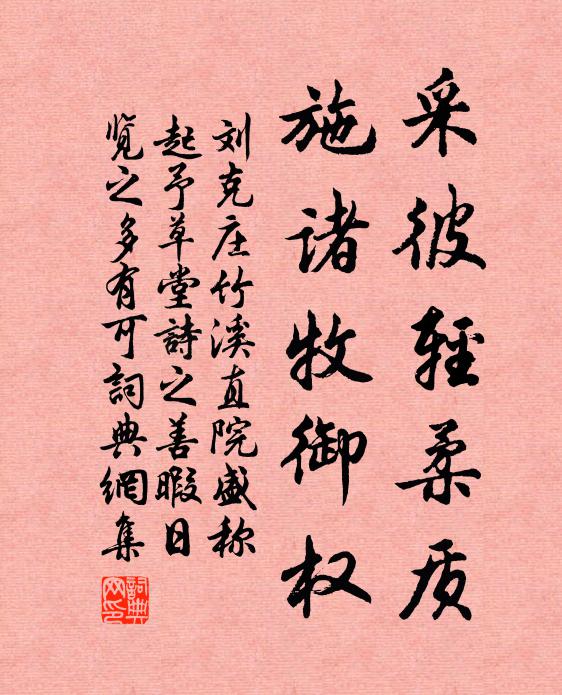 采彼輕柔质
施诸牧御权
刘克庄竹溪直院盛称
起予草堂詩之善暇日
览之多有可詞典網集
詞典网印